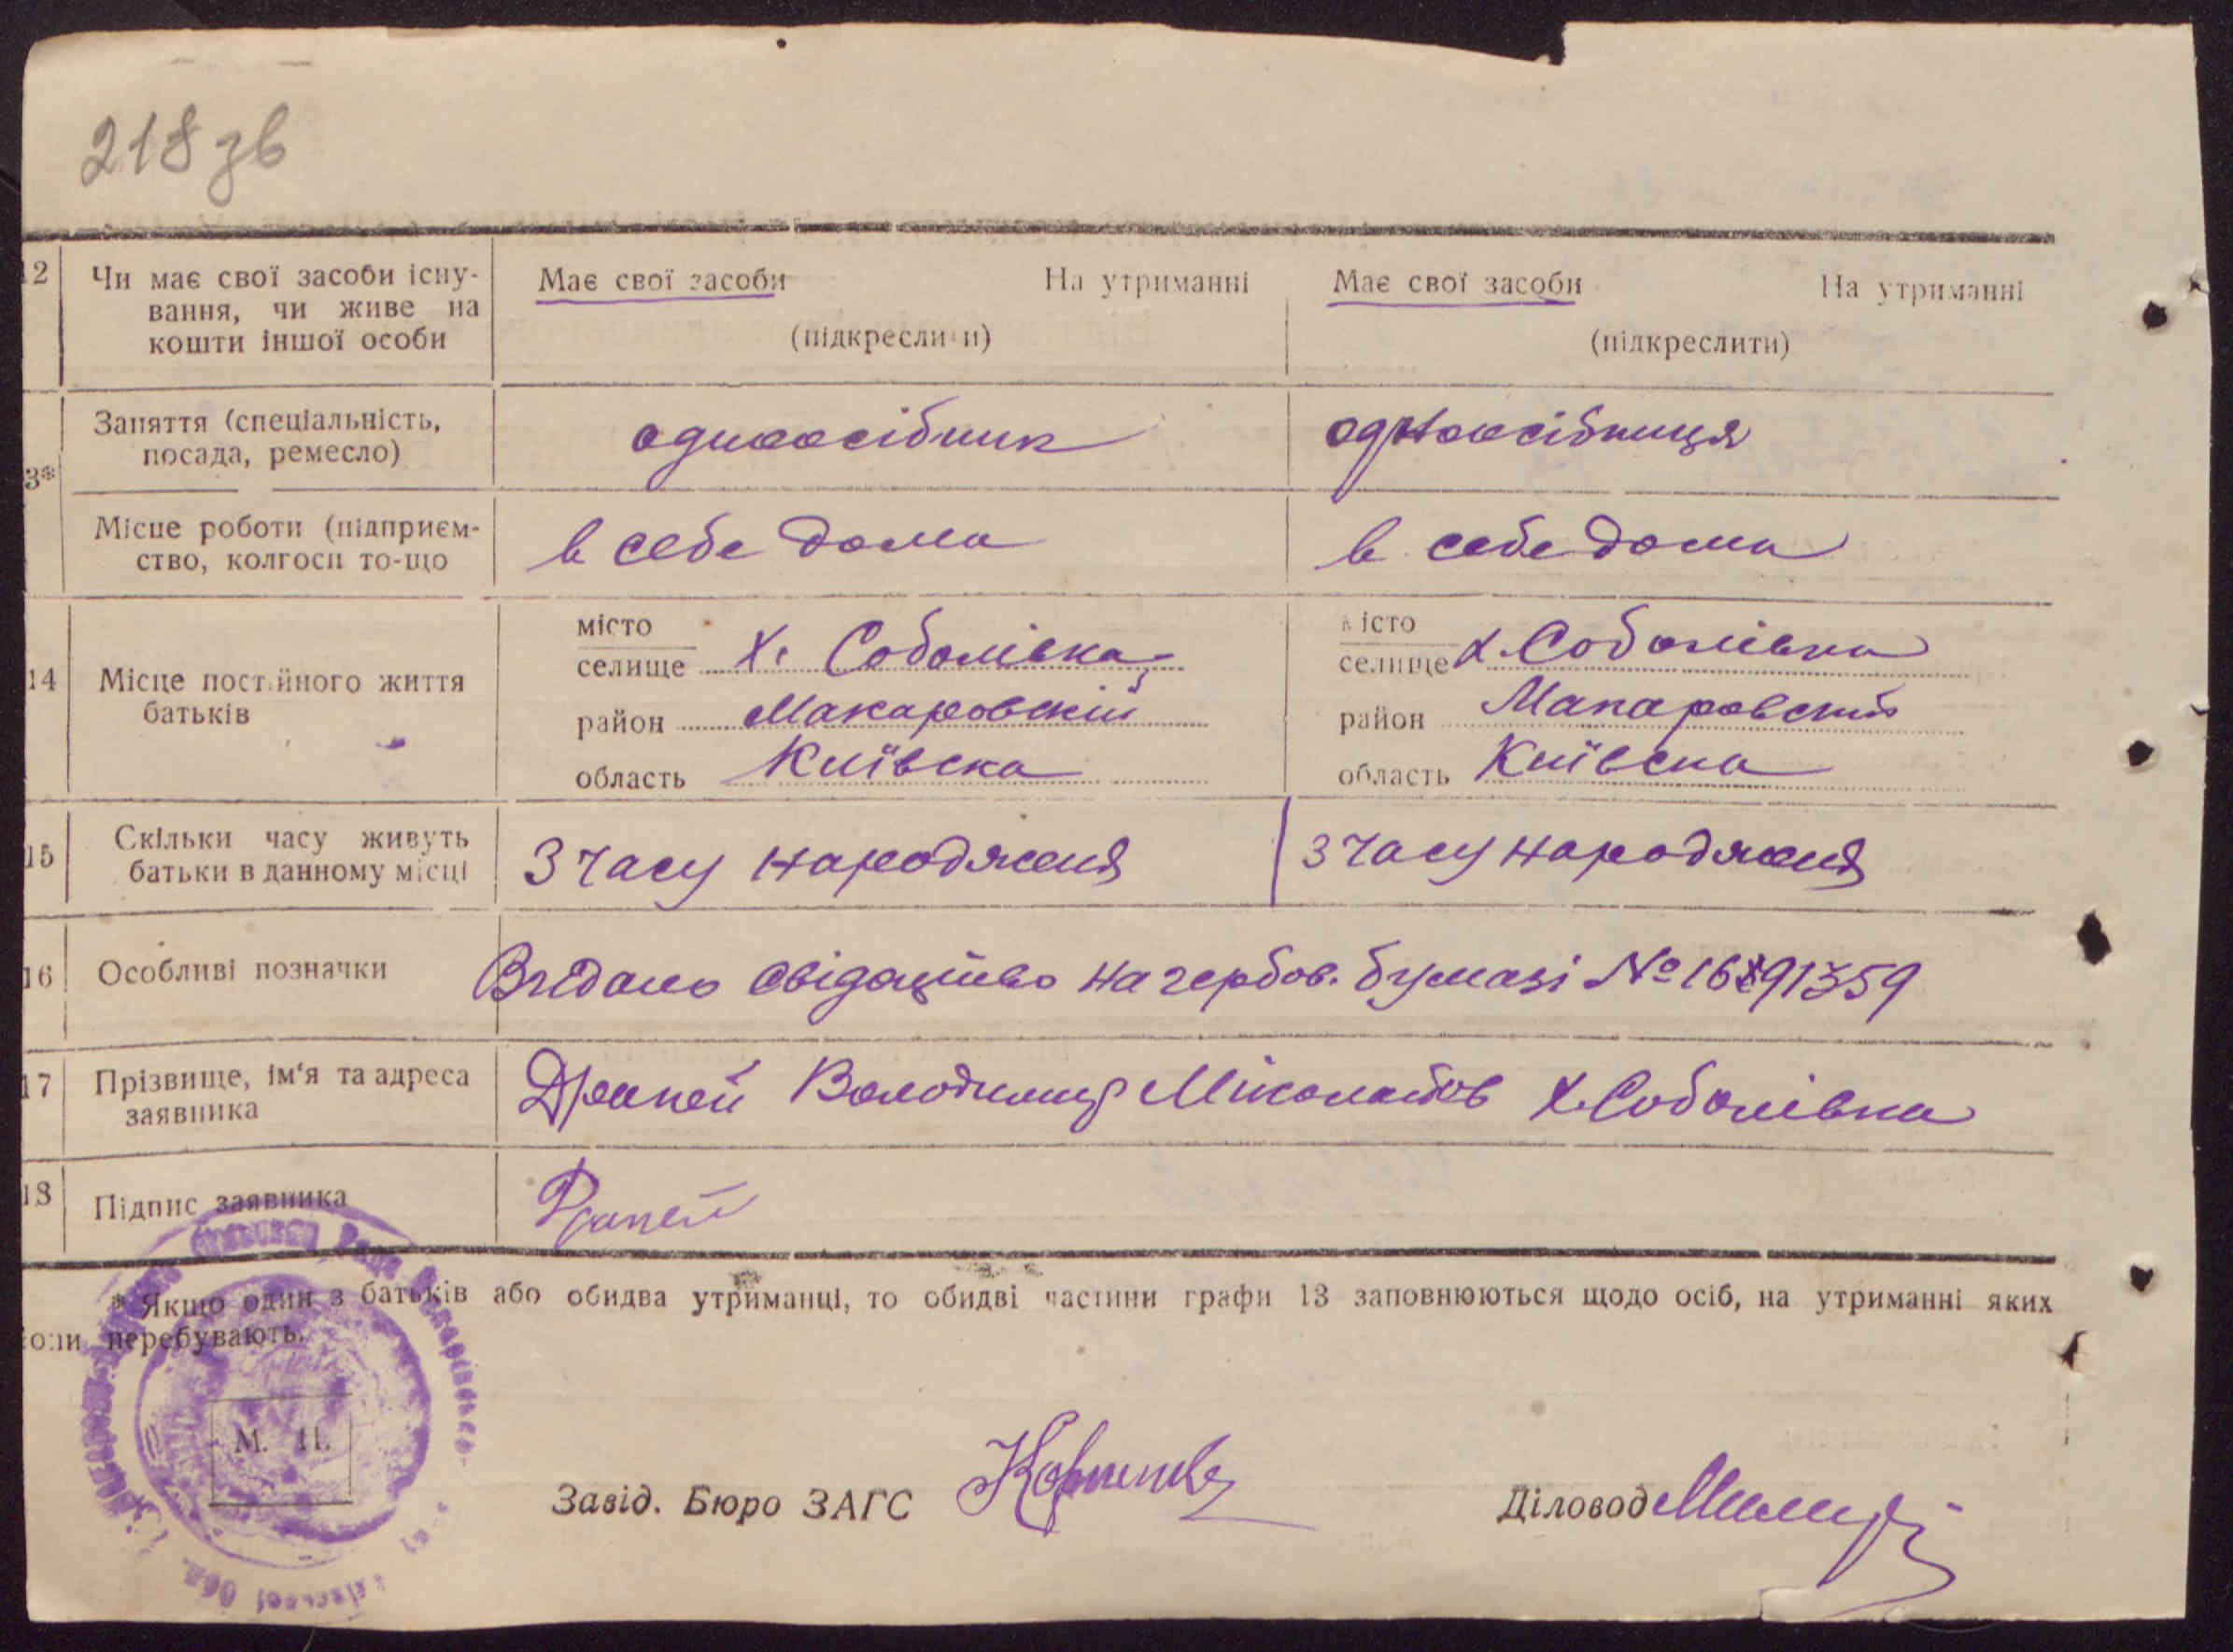 218 зв
12 Чи має свої засоби існу- Має свої засоби На утриманні Має свої засоби На утриманні
вання, чи живе на
кошти іншої особи (підкреслити) (підкреслити)
Заняття (спеціальність, одноосібник одноосібниця
посада, ремесло)
3*
Місце роботи (підприєм- в себе дома в себе дома
ство, колгосп то-що
місто місто
селище х. Соболівка селище х. Соболівка
14 Місце постійного життя
батьків район Макаровскій район Макаровский
область Київска область Київска
15 Скільки часу живуть З часу народженя З часу народженя
батьки в данному місці
16 Особливі позначки Видано свідоцтво на гербов. бумазі №
17 Прізвище, ім'я та адреса Драпей Володимир х. Соболівка
заявника
18 Підпис заявника Драпей
* Якщо один з батьків або обидва утриманці, то обидві частини графи 13 заповнюються щодо осіб, на утриманні яких
вони перебувають.
М. П.
Завід. Бюро ЗАГС Діловод